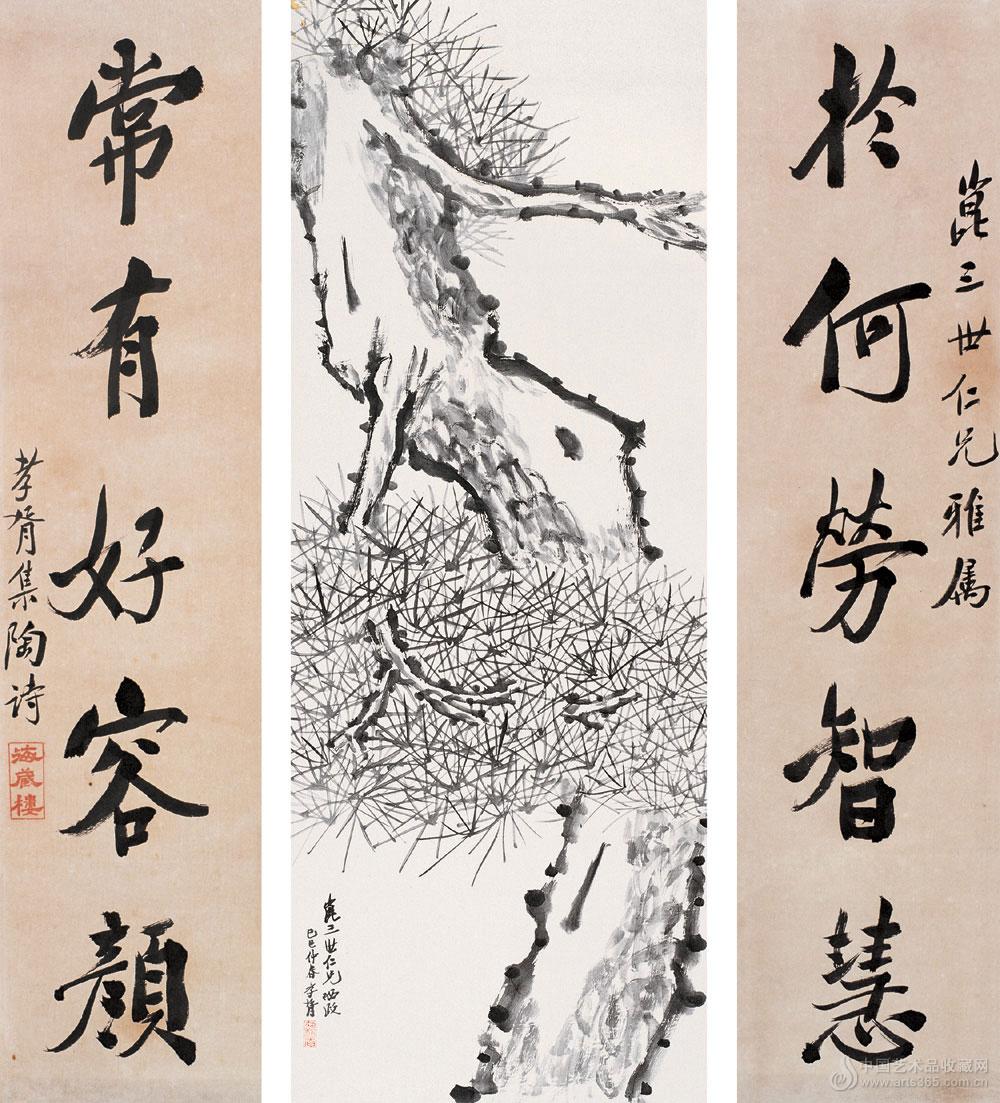 崑三世仁兄雅属
於何勞智慧
崑三世仁兄哂政
己巳仲春孝胥
常有好容顏
孝胥集陶诗
海藏樓
中国艺术品收藏网
www.arts365.com.cn